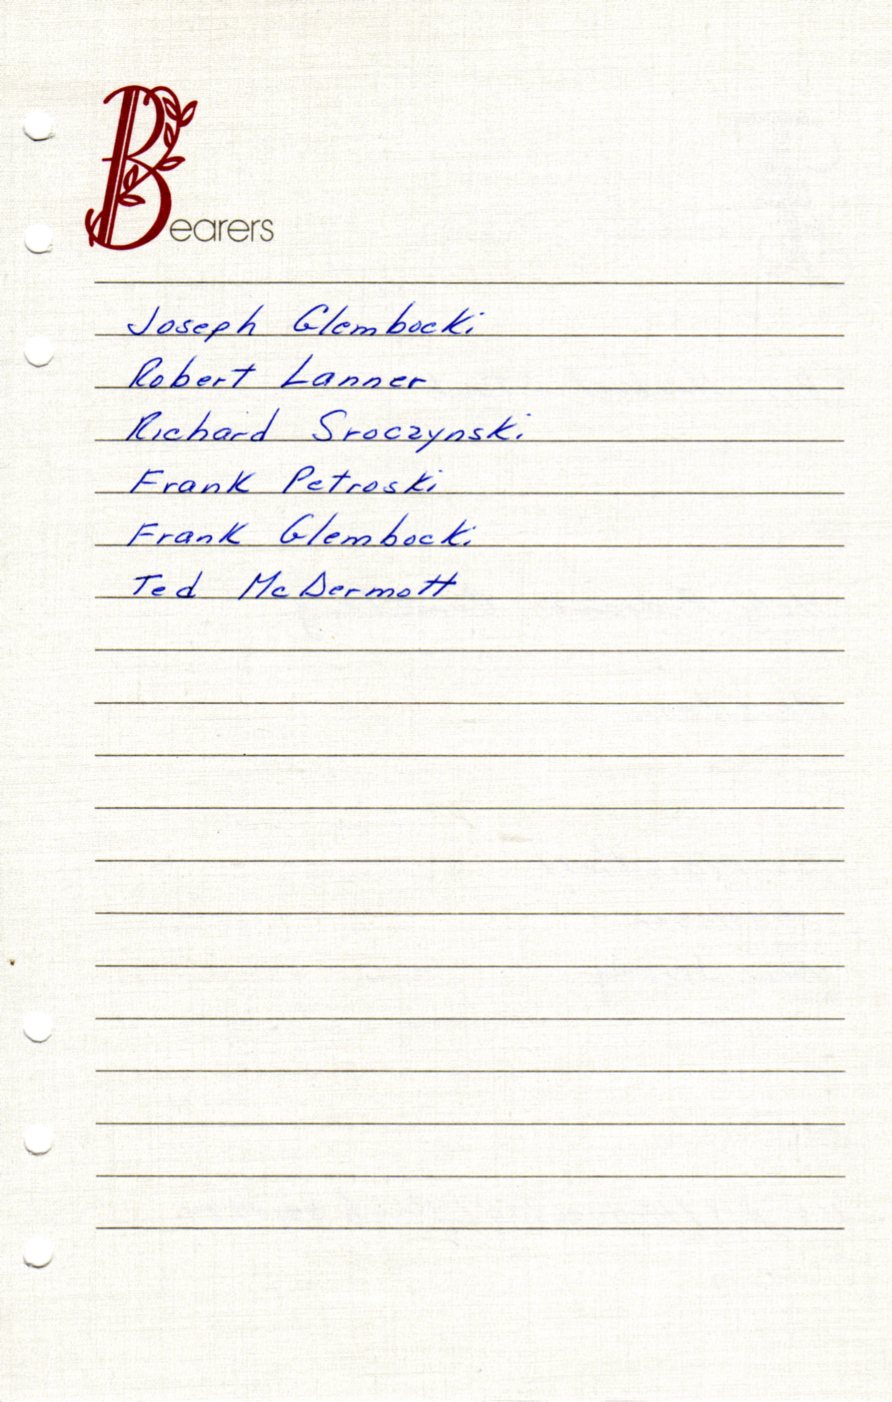 Bearers
Joseph Glembocki
Robert Lanner
Richard Sroczynski
Frank Petroski
Frank Glembocki
Ted McDermott